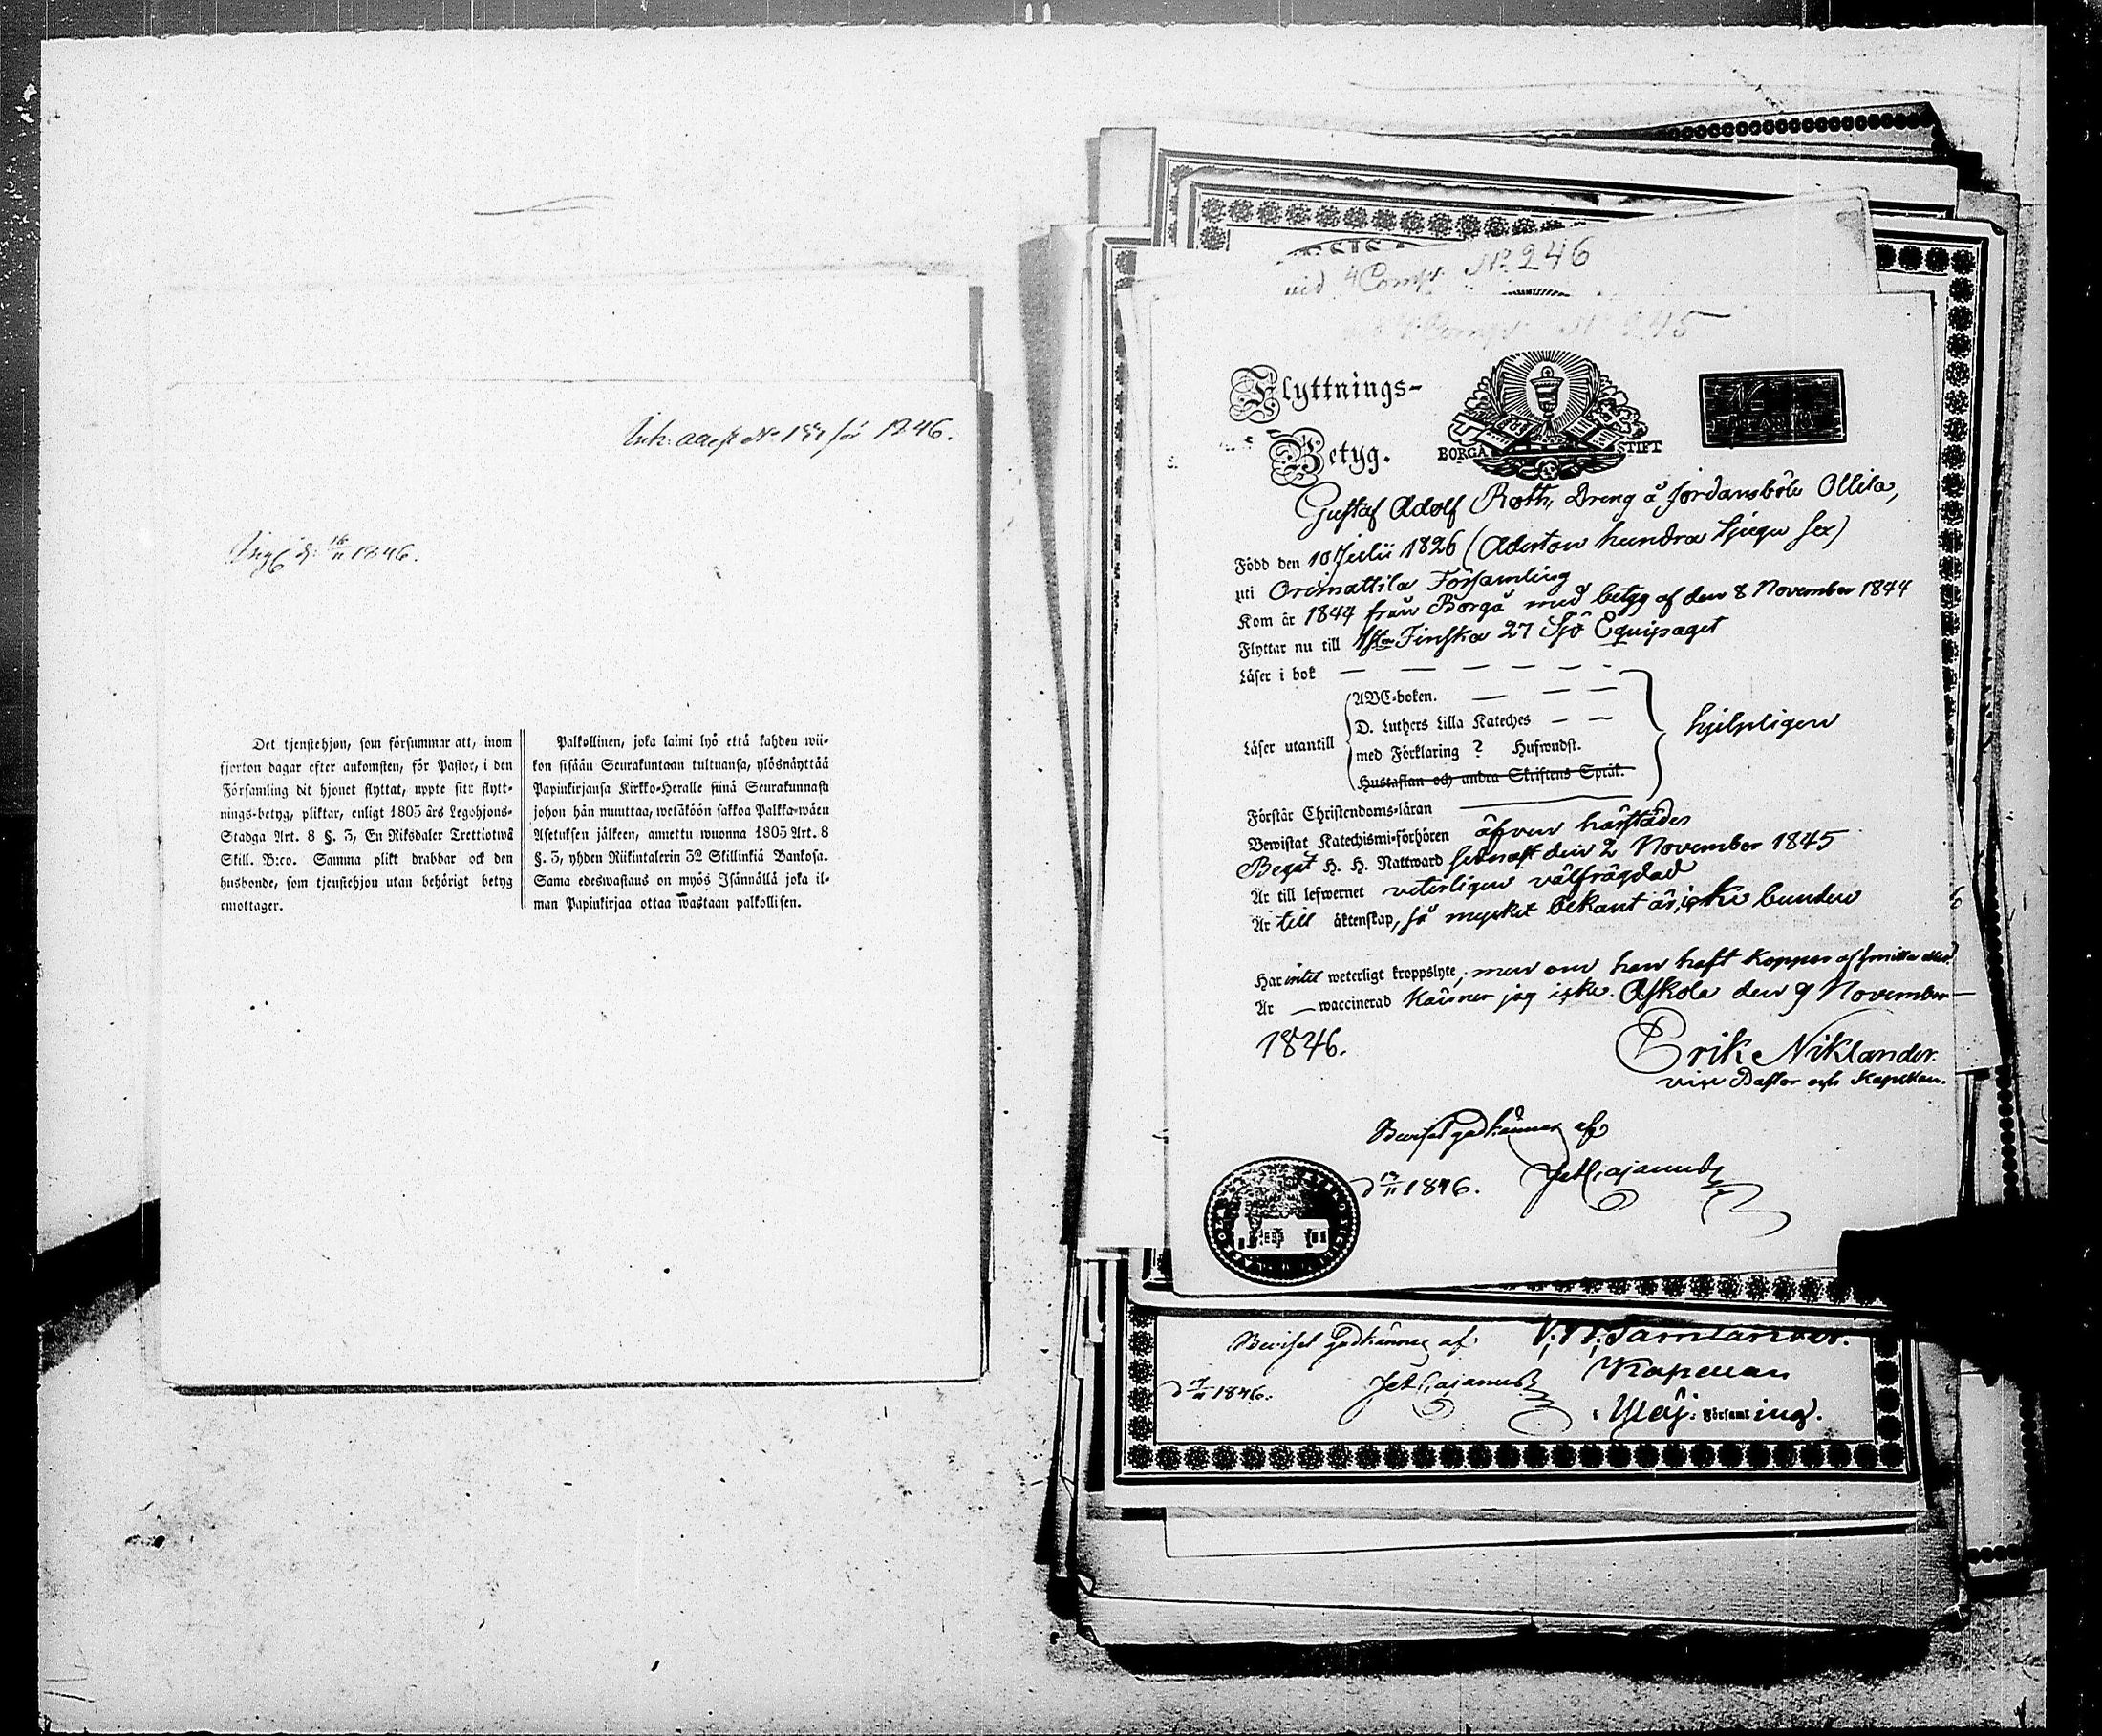 för 1846.
Ing. d. 16/11 1846.
Det tjenstehjon, som försummar att, inom
fjorton dagar efter ankomsten, för Pastor, i den
Församling dit hjonet flyttat, uppte sitt flytt-
nings-betyg, pliktar, enligt 1805 års Legohjons-
Stadga Art. 8 §. 3, En Riksdaler Trettiotwå
Skill. B:co. Samma plikt drabbar ock den
husbonde, som tjenstehjon utan behörigt betyg
emottager.
Palkollinen, joka laimi lyö että kahden wii-
kon sisään Seurakuntaan tultuansa, ylösnäyttää
Papinkirjansa Kirkko-Heralle siinä Seurakunnasa
johon hän muuttaa, wetäköön sakkoa Palkka-wäen
Asetuksen jälkeen, annettu wuonna 1805 Art. 8
§. 3, yhden Riikintalerin 32 Skillinkiä Bankosa.
Sama edeswastaus on myös Isännällä joka il-
man Papinkirjaa ottaa wastaan palkollisen.
vid 4 Comp. No. 246
vid 4 Comp. No. 245
Flyttnings-
Betyg.
BORGÅ STIFT
Gustaf Adolf Roth, Dreng å Jordansböle Ollila,
Född den 10 Julii 1826 (Aderton hundra tjugu sex)
uti Orimattila Församling
Kom år 1844 från Borgå med betyg af den 8 November 1844
Flyttar nu till 1sta Finska 27 Sjö Equipaget
Läser i bok
Läser utantill
ABC-boken.
D. Luthers Lilla Kateches
med Förklaring ? Hufwudst.
Hustaflan och andra Skriftens Språk.
hjelpligen
Förstår Christendoms-läran
Bewistat Katechismi-förhören äfven härstädes
Begåt H. H. Nattward sednast den 2 November 1845
Är till lefwernet veterligen välfrägdad
Är till äktenskap, så mycket bekant är, icke bunden
Har intet weterligt kroppslyte, men om han haft Koppor af smitta eller
Är — waccinerad känner jag icke. Askola den 9 November
1846.
Erik Niklander.
vice Pastor och Kapellan.
Beviset godkännes af
d 17/11 1846. Cajanus
Beviset godkännes af
d 17/11 1846. Cajanus
Kapellan
i Församling.